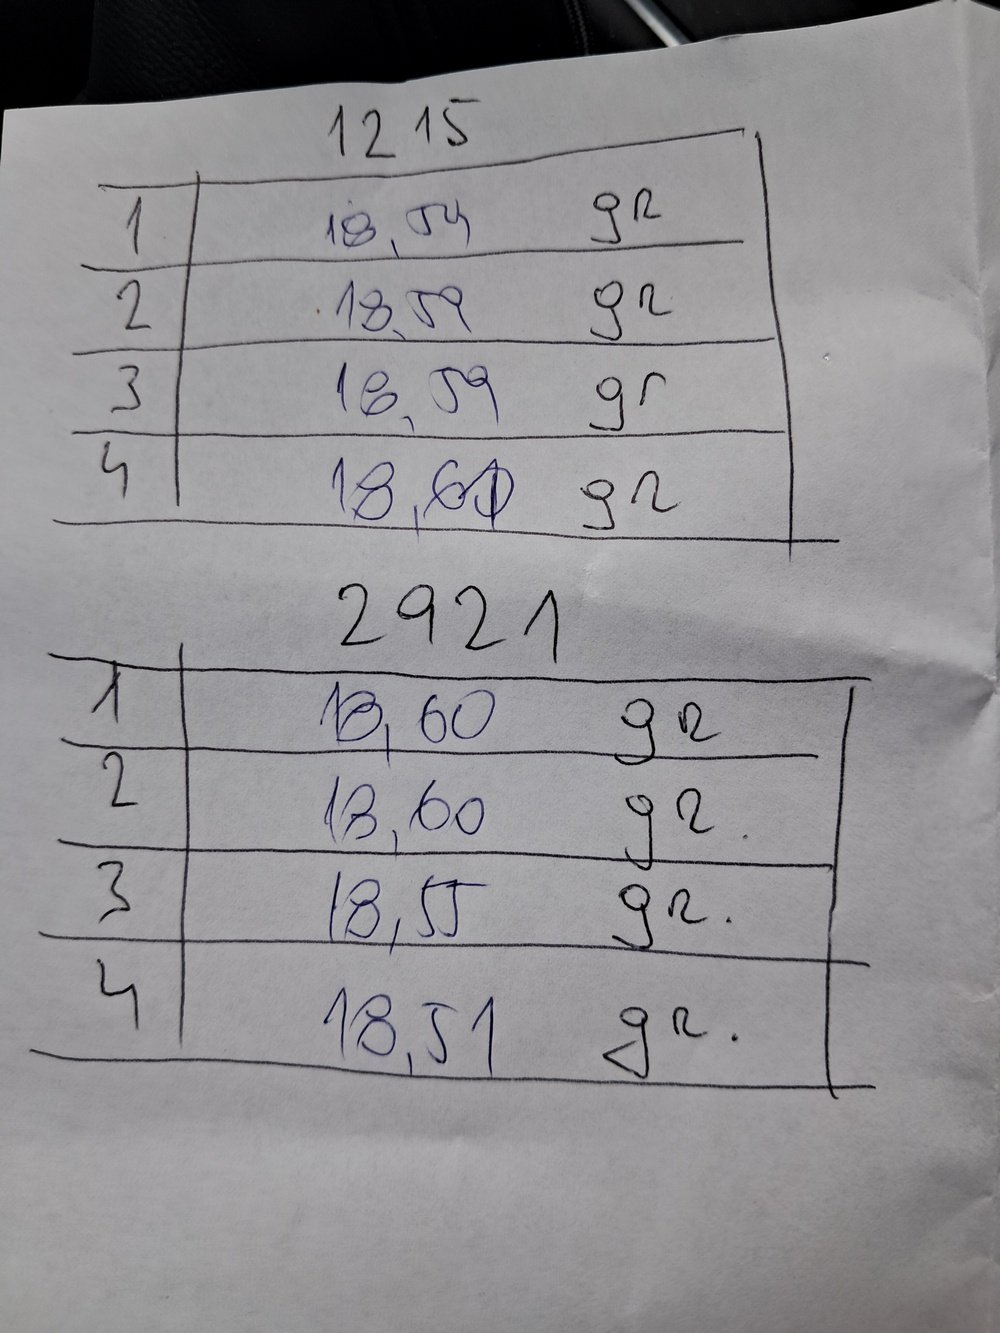 1215
1 18,54 gr
2 18,59 gr
3 18,59 gr
4 gr
2921
1 18,60 gr
2 18,60 gr.
3 18,55 gr.
4 18,51 gr.